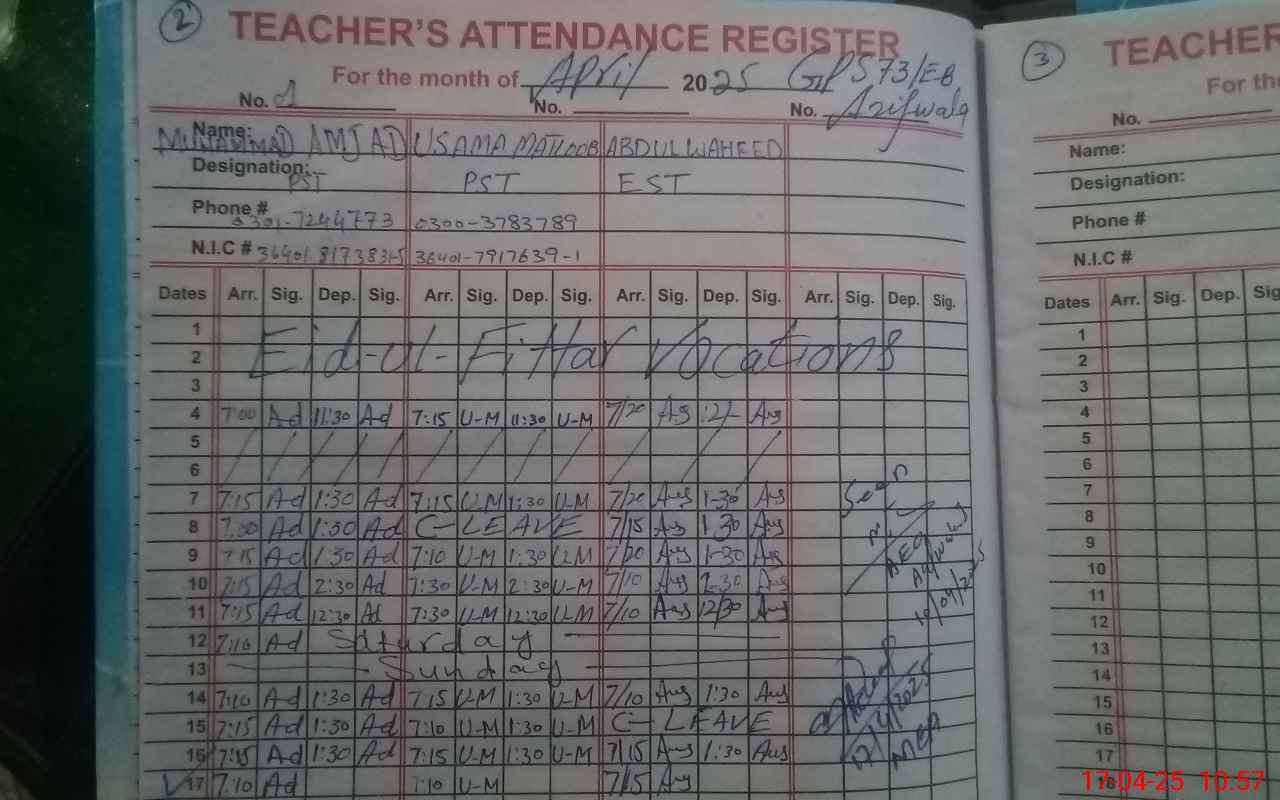 2
TEACHER'S ATTENDANCE REGISTER
For the month of April 2025 GPS 73/EB
No. 1 No. No. Arifwala
Name: MUHAMMAD AMJAD USAMA MATLOOB ABDUL WAHEED
Designation: PST PST EST
Phone # 0301-7244773 0300-3783789
N.I.C # 36401-7917639-1
Dates Arr. Sig. Dep. Sig. Arr. Sig. Dep. Sig. Arr. Sig. Dep. Sig. Arr. Sig. Dep. Sig.
1
2 Eid-ul-Fittar Vocations
3
4 7:00 Ad 11:30 Ad 7:15 U-M 11:30 U-M 7/20 12/-
5
6
7 7:15 Ad 1:30 Ad 7:15 U-M 1:30 U-M 7/20 1-30
8 7:00 Ad 1:30 Ad C-LEAVE 7/15 1.30
9 7:15 Ad 1:30 Ad 7:10 U-M 1:30 U-M 7/20 1-30
10 7:15 Ad 2:30 Ad 7:30 U-M 2:30 U-M 7/10 2-30
11 7:15 Ad 12:30 Ad 7:30 U-M 12:30 U-M 7/10 12/30
12 7:10 Ad Saturday
13 Sunday
14 7:10 Ad 1:30 Ad 7:15 U-M 1:30 U-M 7/10 1:30
15 7:15 Ad 1:30 Ad 7:10 U-M 1:30 U-M C-LEAVE
16 7:15 Ad 1:30 Ad 7:15 U-M 1:30 U-M 7/15 1:30
17 7:10 Ad 7:10 U-M 7/15
Seen
AEO
3
TEACHER
For the
No.
Name:
Designation:
Phone #
N.I.C #
Dates Arr. Sig. Dep. Sig
1
2
3
4
5
6
7
8
9
10
11
12
13
14
15
16
17
18
17-04-25 10:57